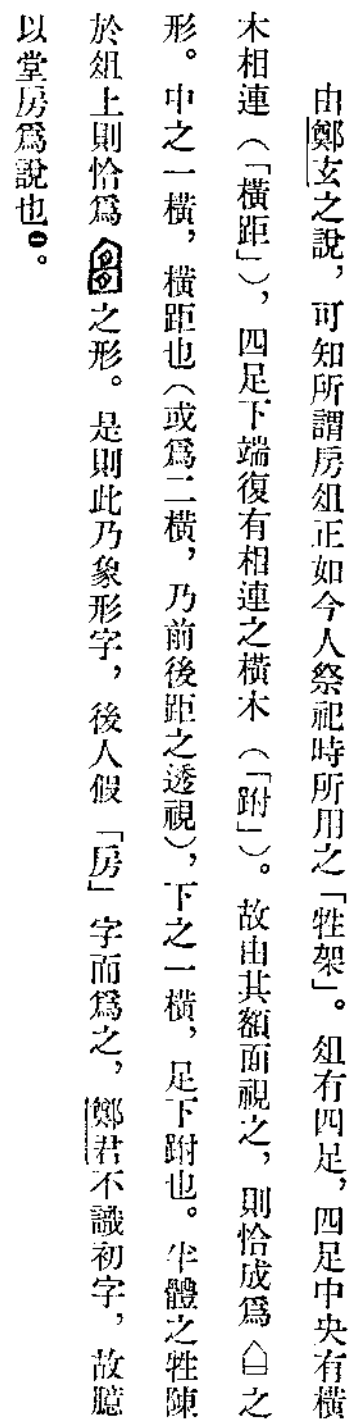 由鄭玄之說，可知所謂房俎正如今人祭祀時所用之「牲架」。俎有四足，四足中央有橫
木相連（「橫距」），四足下端復有相連之橫木（「跗」）。故由其額面視之，則恰成爲之
形。中之一橫，橫距也（或爲二橫，乃前後距之透視），下之一橫，足下跗也。半體之牲陳
於俎上則恰爲之形。是則此乃象形字，後人假「房」字而爲之，鄭君不識初字，故臆
以堂房爲說也❶。